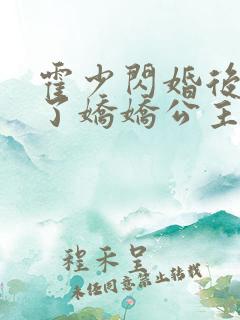 霍少閃婚後
了嬌嬌公主
程禾呈
未經同意禁止轉載